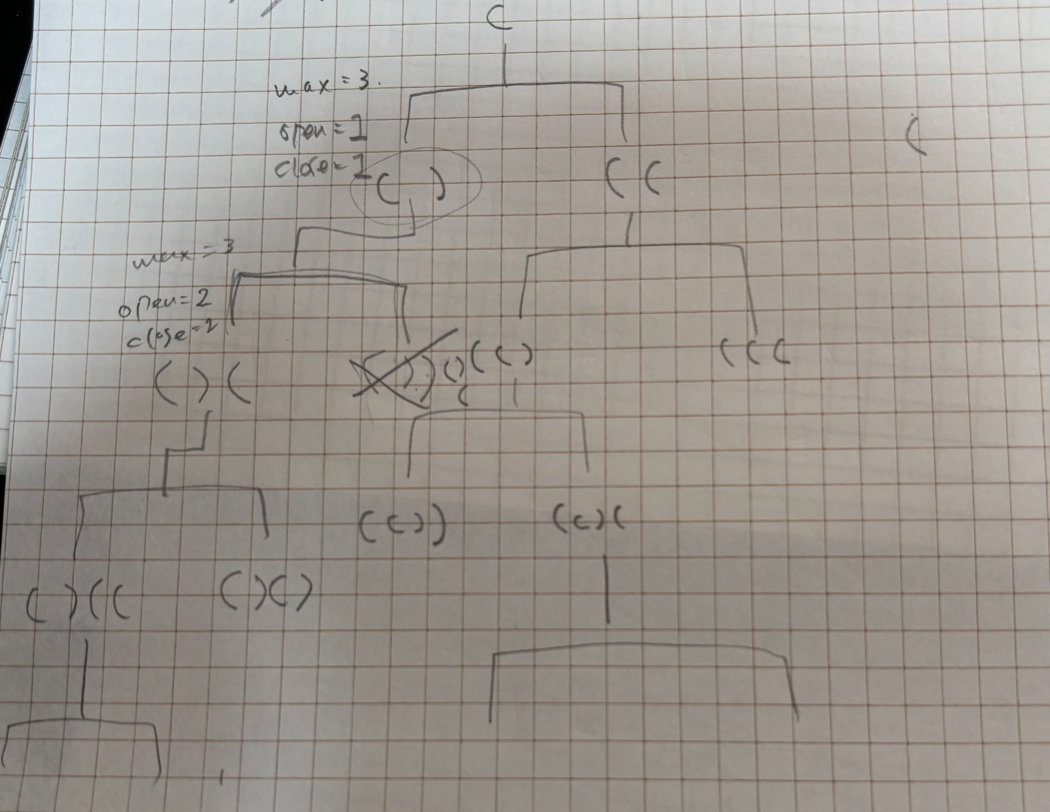 (
max = 3.
open = 1
close = 1
( )
( (
(
max = 3
open = 2
close = 2
( ) (
( ( )
( ( (
( ( ) )
( ( ) (
( ) ( (
( ) ( )